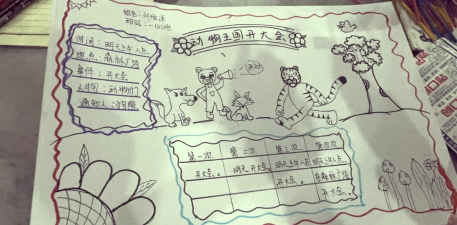 动物王国开大会
时间：明天上午八点
地点：森林广场
事件：开大会
人物：动物们
通知人：狗熊
第一次 第二次 第三次 第四次
开大会。 明天开大会。 明天上午八点 明天上午八点
开大会。 在森林广场
开大会。